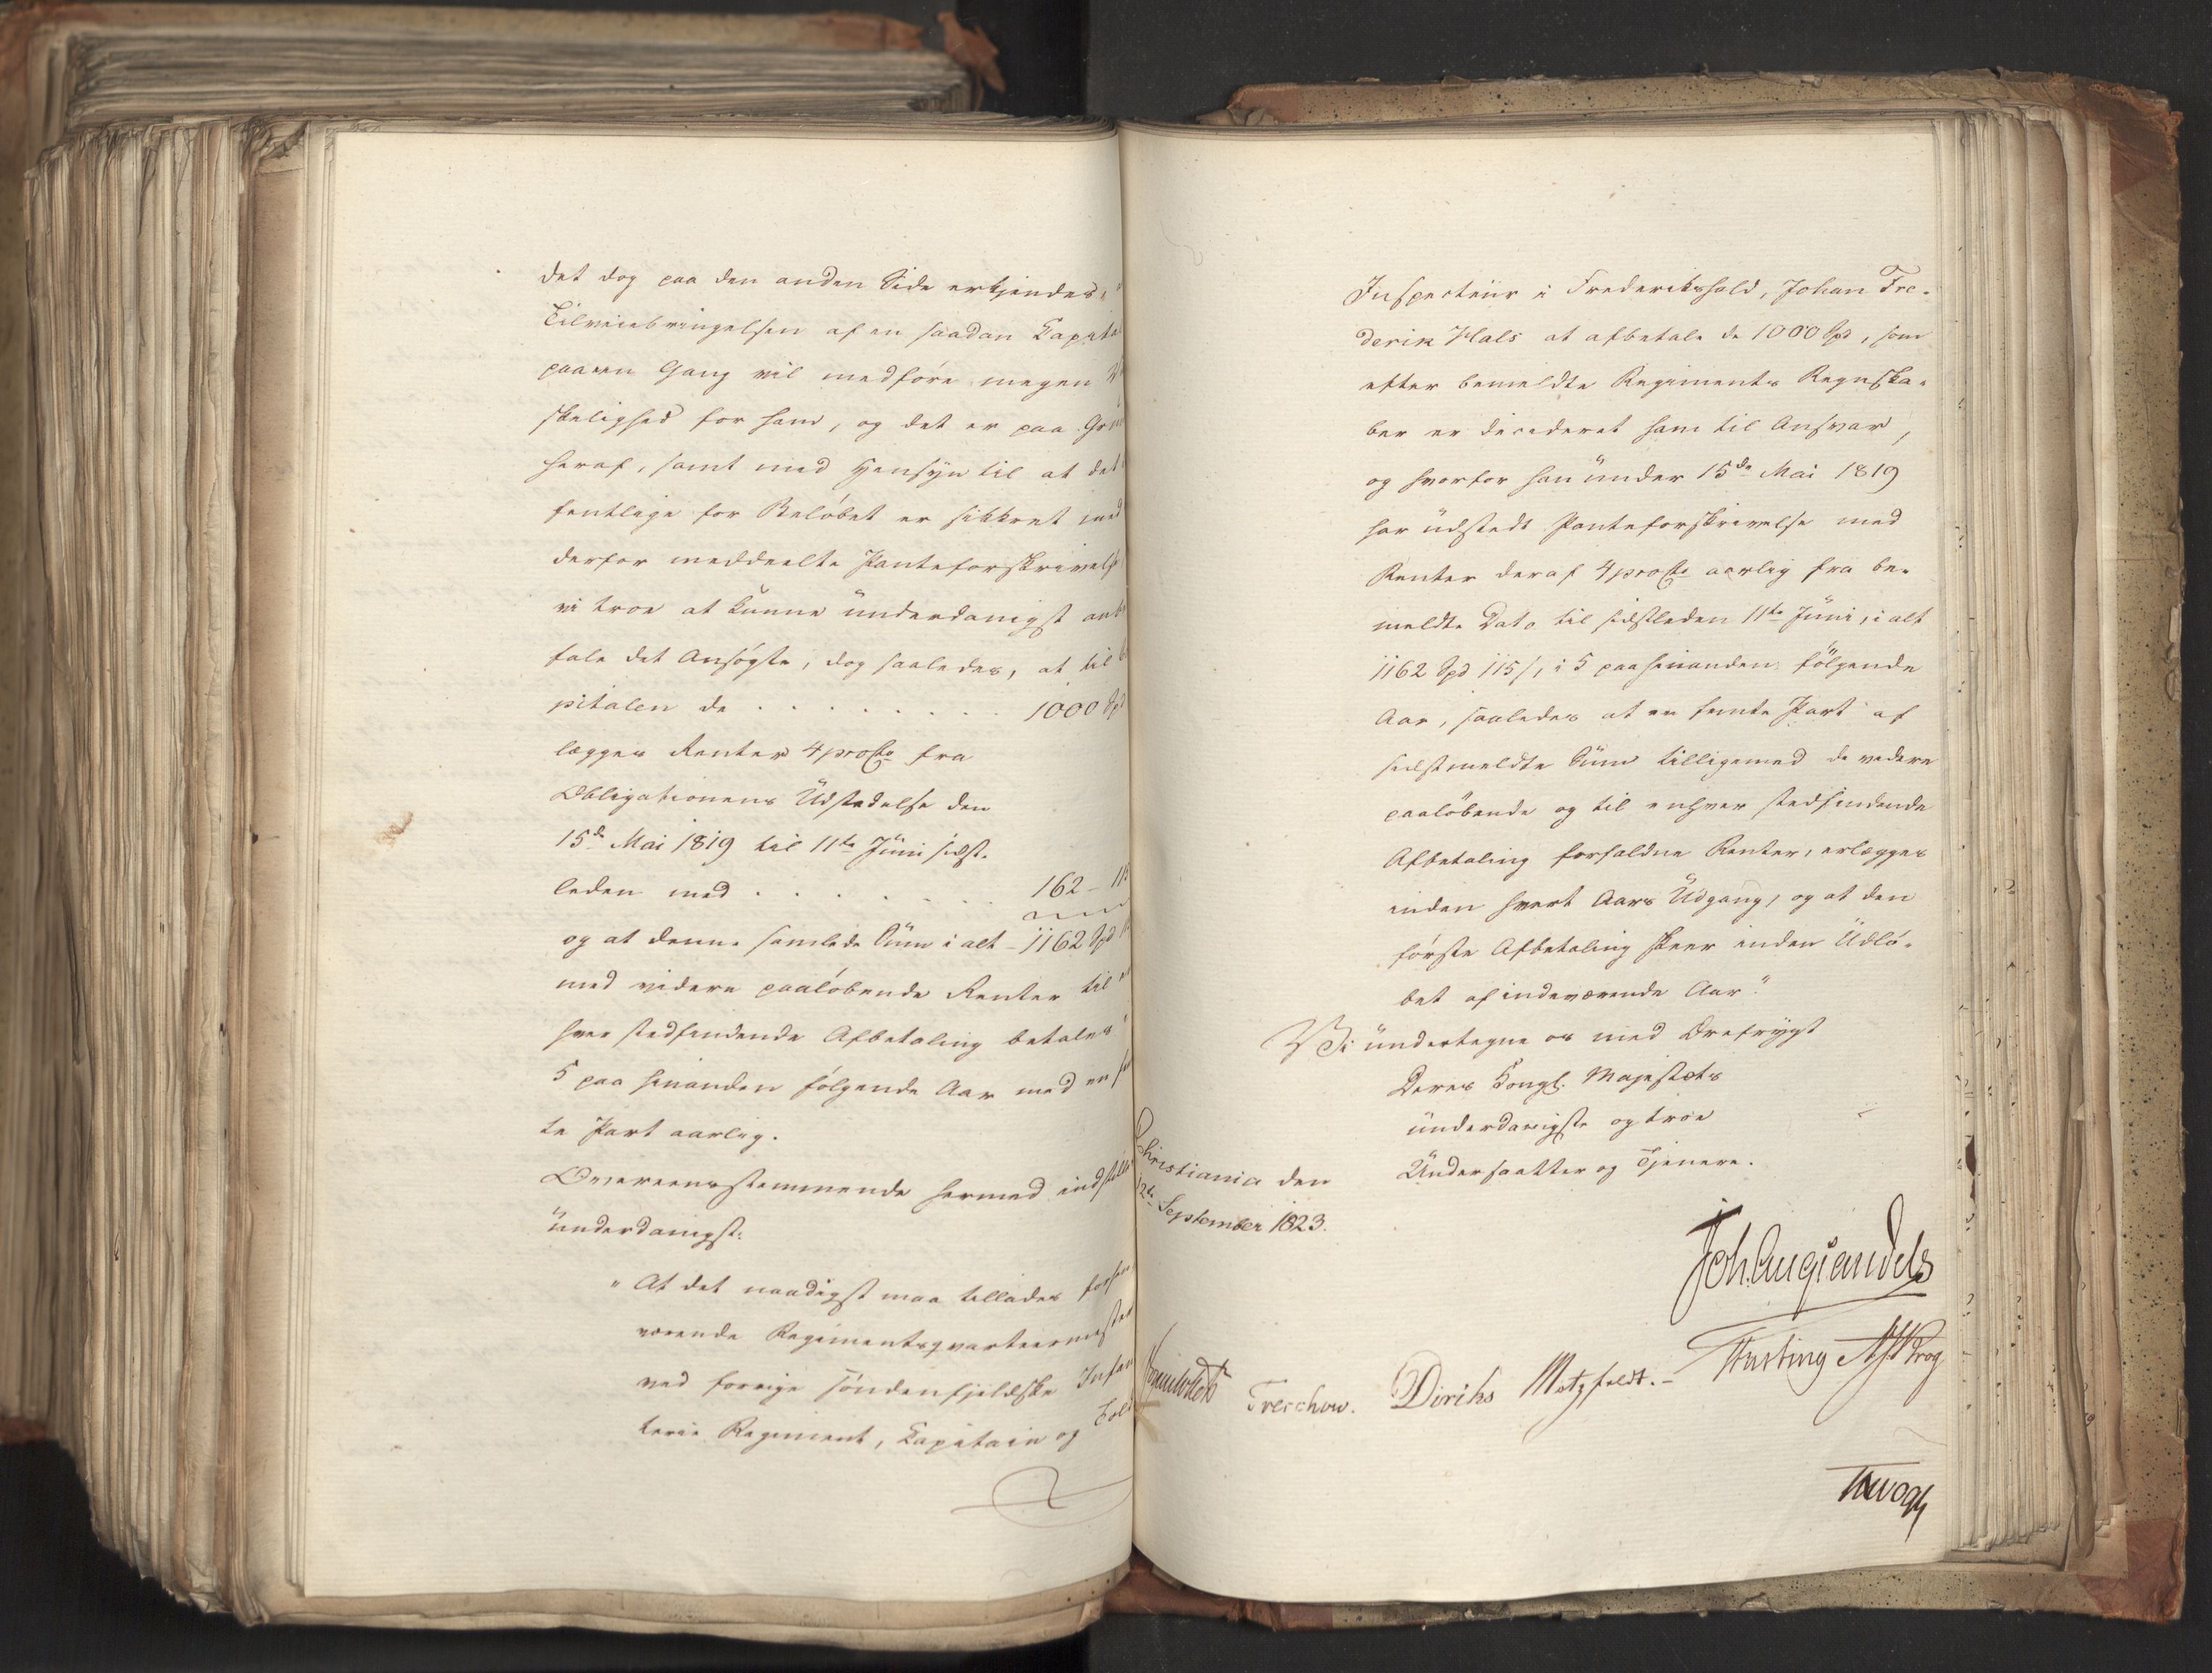 det dog paa den anden Side erkjendes,
Tilveiebringelsen af en saadan Kapital
paa een Gang vil medføre megen
skelighed for ham, og det er paa Grün
heraf, samt med Hensyn til at det
fentlige for Beløbet er sikkret med
derfor meddeelte Panteforskrivelse
vi troe at kunne ünderdanigst anbe
fale det Ansøgte, dog saaledes, at til
pitalen de . . . . . . . . 1000 Spd
lægges Renter 4 procto fra
Obligationens Üdstedelse den
15de Mai 1819 til 11te Jüni sidst-
leden med . . . . . . 162 - 115
og at denne samlede Süm i alt - 1162 Spd
med videre paaløbende Renter til
hver stedfindende Afbetaling betales
5 paa hinanden følgende Aar med en fem
te Part aarlig.
Overeensstemmende hermed indstilles
ünderdanigst:
"At det naadigst maa tillades forhen
værende Regimentsqvarteermester
ved forrige søndenfjeldske Infan
terie Regiment, Kapitain og Told
Inspecteür i Frederikshald, Johan Fre-
derik Hals at afbetale de 1000 Spd, som
efter bemeldte Regiments Regnska-
ber er decideret ham til Ansvar,
og hvorfor han ünder 15de Mai 1819
har üdstedt Panteforskrivelse med
Renter deraf 4 procto aarlig fra be-
meldte Dato til sidstleden 11te Jüni, i alt
1162 Spd 115 s, i 5 paa hinanden følgende
Aar, saaledes at en femte Part af
sidstmeldte Süm tilligemed de videre
paaløbende og til enhver stedfindende
Afbetaling forfaldne Renter, erlægges
inden hvert Aars Üdgang, og at den
første Afbetaling skeer inden Üdlø-
bet af indeværende Aar."
Vi ündertegne os med Ærefrygt
Deres Kongl. Majestæts
ünderdanigste og troe
Ündersaatter og Tjenere.
Christiania den
12te September 1823.
Joh. Aug. Sandels
Sommerhielm Treschow. Diriks Motzfeldt. - Fasting A. Krog